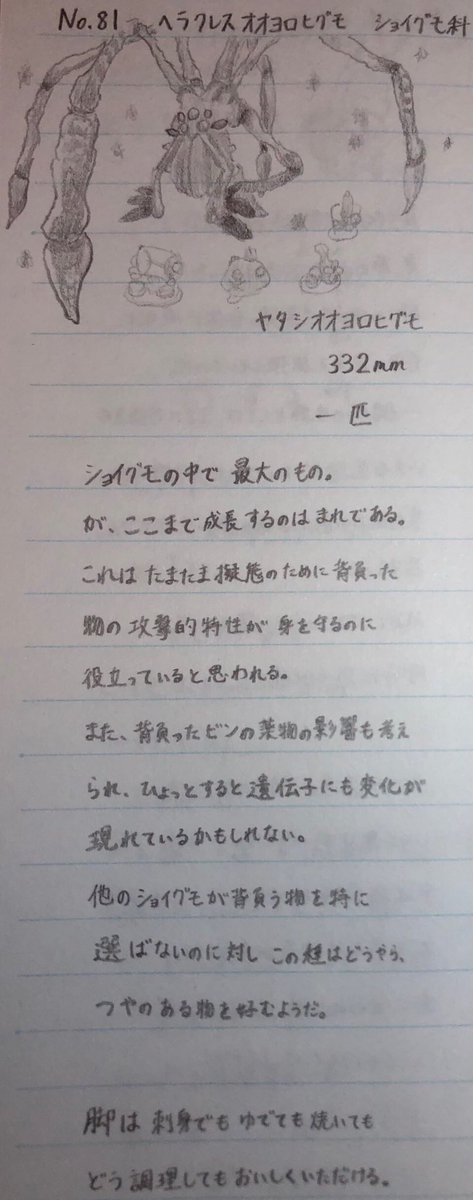 No.81 ヘラクレスオオヨロヒグモ ショイグモ科
ヤタシオオヨロヒグモ
332mm
一匹
ショイグモの中で最大のもの。
が、ここまで成長するのはまれである。
これはたまたま擬態のために背負った
物の攻撃的特性が身を守るのに
役立っていると思われる。
また、背負ったビンの薬物の影響も考え
られ、ひょっとすると遺伝子にも変化が
現れているかもしれない。
他のショイグモが背負う物を特に
選ばないのに対しこの種はどうやら、
つやのある物を好むようだ。
脚は刺身でもゆでても焼いても
どう調理してもおいしくいただける。